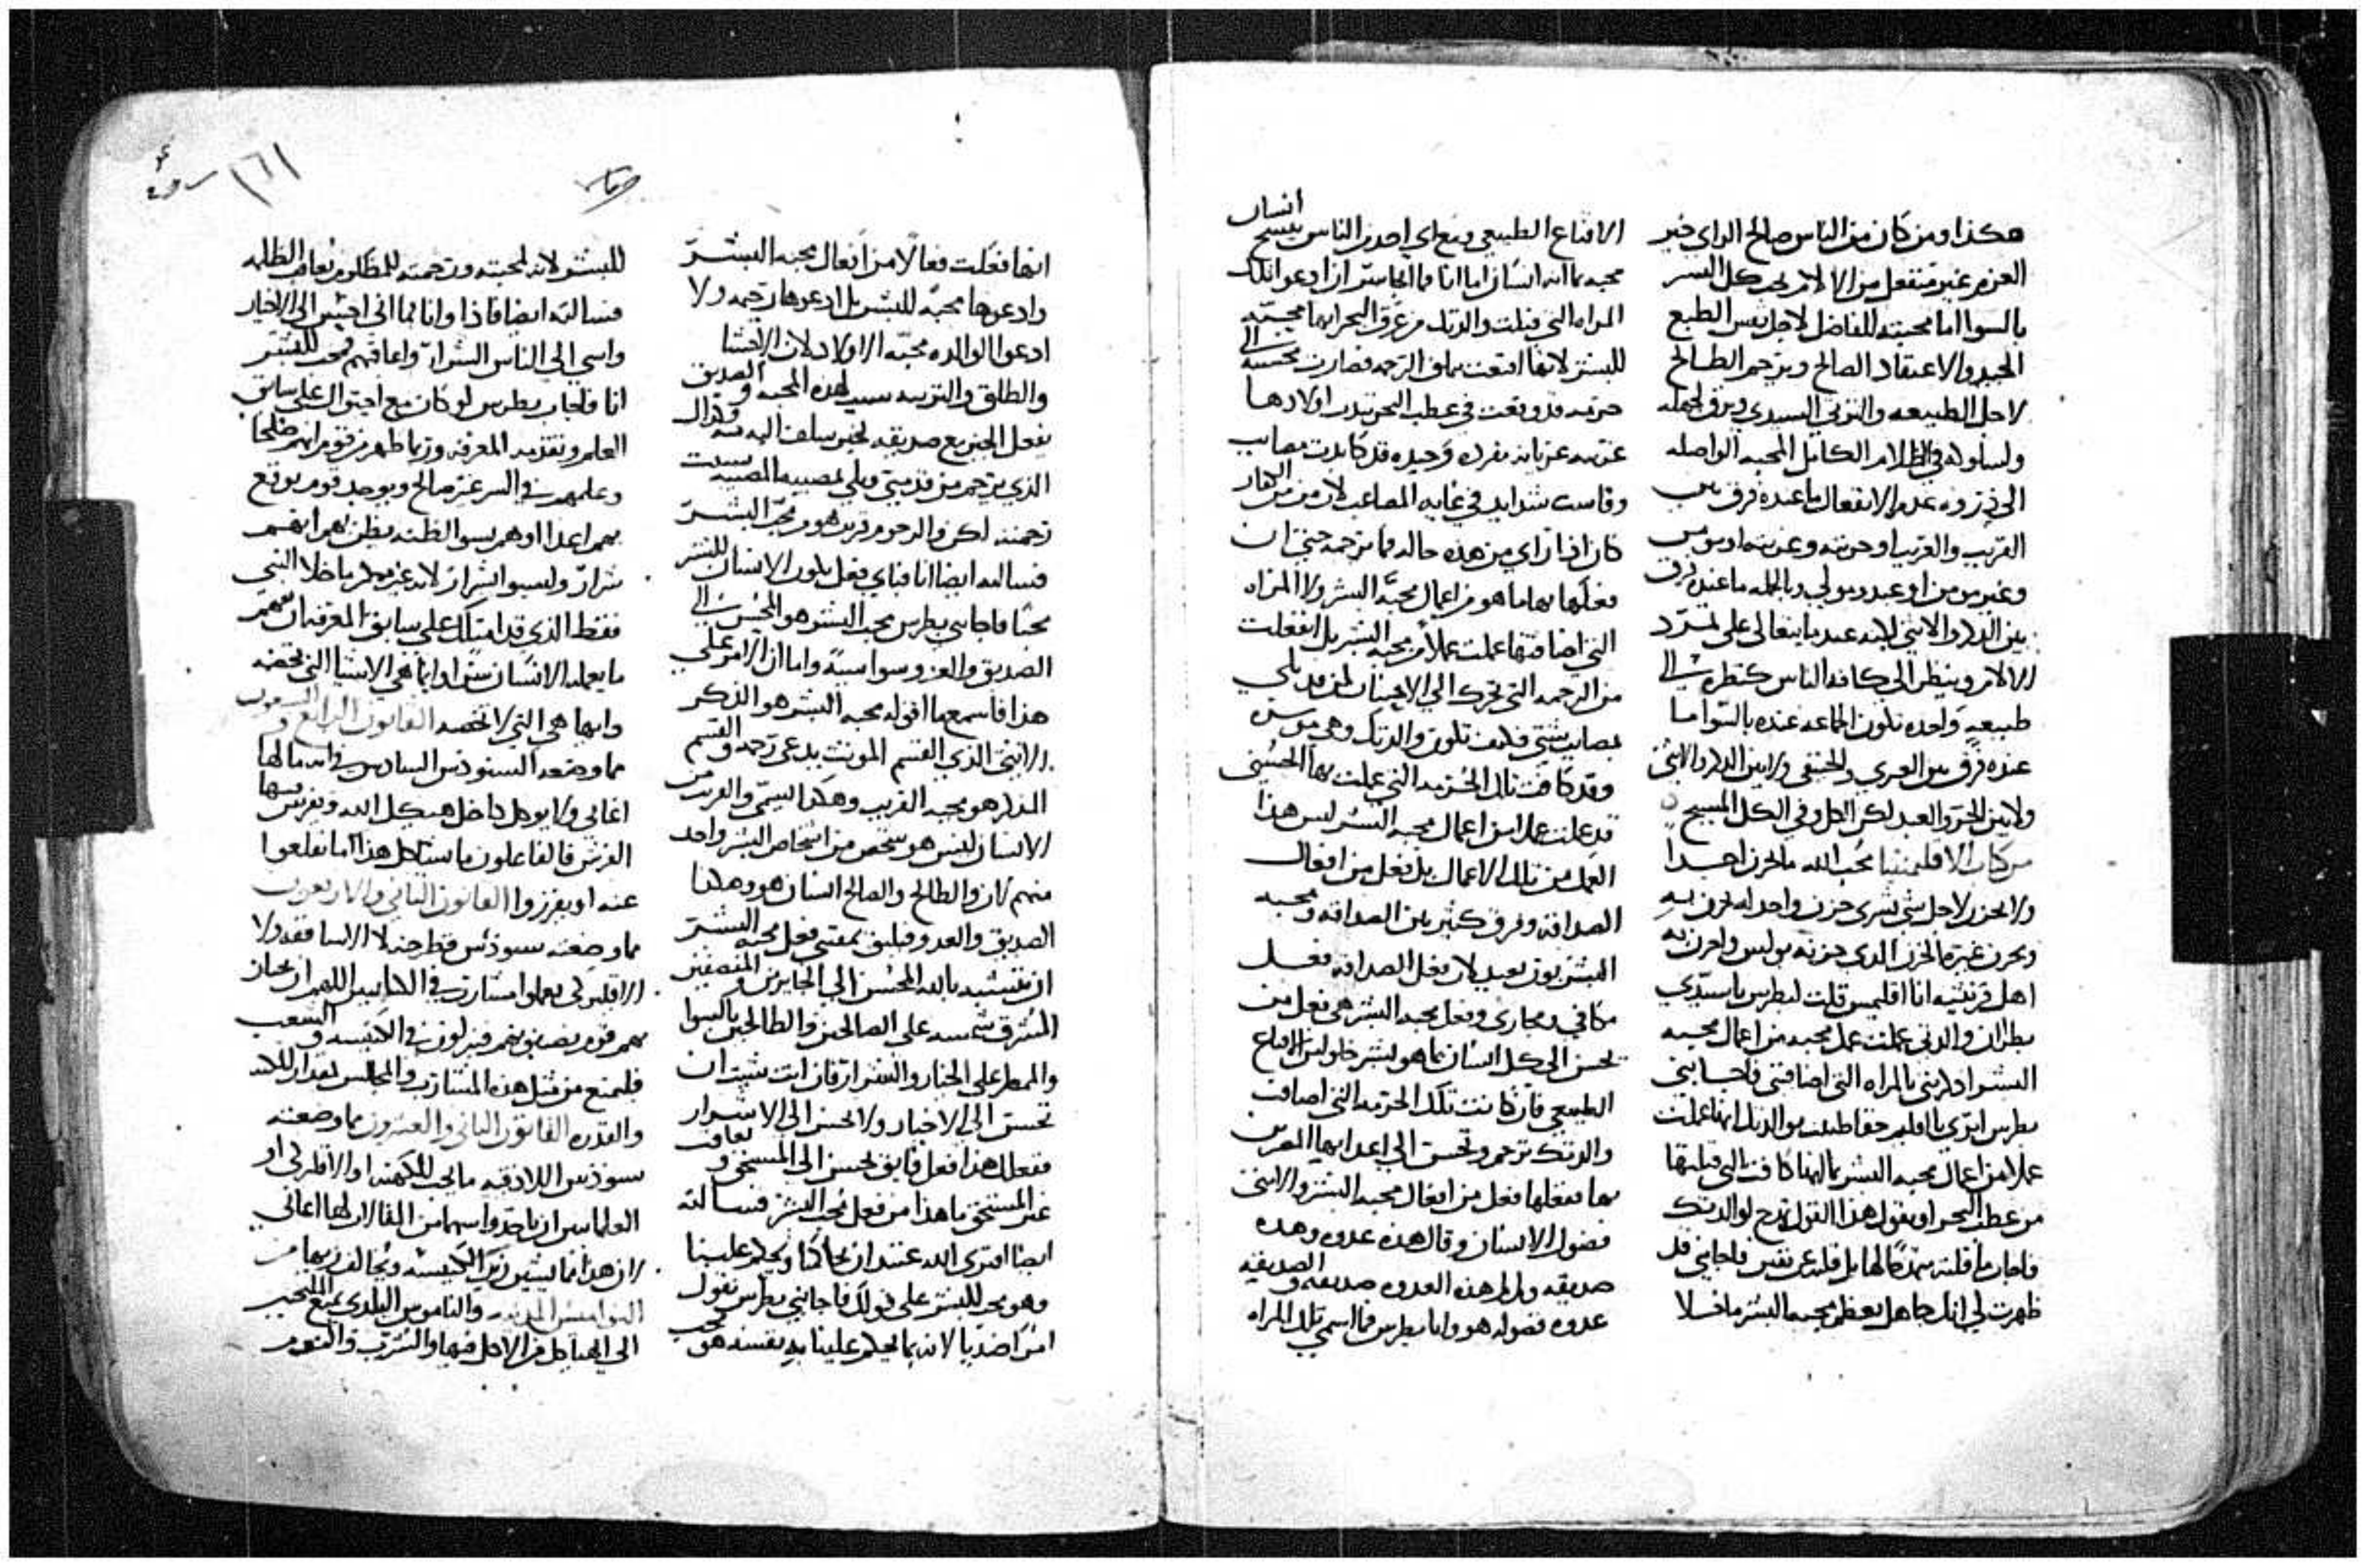 هكذا ومن كان من الناس صالح الراي خير
العزم غير منفعل من الالام يحب كل البشر
بالسوا اما محبته للفاضل لاجل نفس الطبع
الجيد والاعتقاد الصالح ويترحم الطالح
لاجل الطبيعه والتربي السيدي ويرق لجهله
ولسلوكه في الظلام الكامل المحبه الواصله
الى ذروه عدم الانفعال ما عنده فرق بين
القريب والغريب
وغير مومن او عبد ومولى وبالجمله ما عنده فرق
بين الذكر والانثى لكنه عندما يتعالى على تمرد
الالام وينظر الى كافه الناس كنظره الى
طبيعه واحده تكون الجماعه عنده بالسوا اما
عنده فرق بين العبري والحنفي ولا بين الذكر والانثى
ولا بين الحر والعبد لكن الكل وفي الكل المسيح
محب الله ما يحزن احدا
ولا يحزن لاجل شي سوى حزن واحد انه يحزن به
ويحزن غيره كالحزن الذي حزنه بولس واحزن به
اهل قرنثيه انا اقليمس قلت لبطرس يا سيدي
بطران والدتي عملت عمل محبه من اعمال محبه
البشر اذ لاتني بالمراه التي اضافتني فاجابني
بطرس اترى يا اقليمس حقا ظننت بوالدتك انها عملت
عملا من اعمال محبه البشر بما انها كافت التي قبلتها
من عطب البحر او تقول هذا القول تمدح لوالدتك
فاجاب ما قلته تمدحا لها بل قلته عن يقين فاجابني قد
ظهرت لي انك جاهل بعظم محبه البشر ما هي لا
انسان
الاقناع الطبيعي ومع اي احد من الناس بنسج
محبه بما انه انسان اما انا فما اتجاسر ان ادعو تلك
المراه التي قبلت والدتك من غرق البحر انها محبته
للبشر لانها اقتنعت بملق الرحمه فصارت محسنه الى
حزينه قد وقعت في عطب البحر تندب اولادها
غريبه عريانه مفرده وحيده قد كابدت مصايب
وقاست شدايد في غايه المصاعب
كان اذا راي من هذه حاله فما يرحمه حتى ان
فعلها بها ما هو من اعمال محبه البشر ولا المراه
التي اضافتها عملت عملا من محبه البشر بل انفعلت
من الرحمه التي تحرك الى الاحسان لمن قد بلي
بمصايب شتى فكيف تكون والدتك وهي موسره
وقد كافت تلك الحزينه التي عملت بها الحسنى
قد عملت عملا من اعمال محبه البشر ليس هذا
العمل من تلك الاعمال بل فعل من افعال
الصداقه وفرق كثير بين الصداقه ومحبه
البشر بون بعيد لان فعل الصداقه فعل
مكافي ومجازي وفعل محبه البشر هي فعل من
تحسن الى كل انسان بما هو بشر خلو من الاقناع
الطبيعي فان كانت تلك الحزينه التي اضافت
والدتك ترحم وتحسن الى اعدايها المضرين
بها ففعلها فعل من افعال محبه البشر والانثى
فضول الانسان وقال هذه عدوه وهذه
صديقه ولم هذه العدوه صديقه والصديقه
عدوه فضوله هو وانا بطرس فما اسمي تلك المراه
١٦١
انها فعلت فعالا من افعال محبه البشر
وادعوها محبه للبشر بل ادعوها رحمه ولا
ادعوا الوالده محبه الاولاد لان الاحشا
والطلق والتربيه سبب لهذه المحبه والصديق
يفعل الخير مع صديقه لخير سلف اليه منه وكذلك
الذي يترحم من قد سبي وبلي بمصيبه المصيبه سببت
رحمته لكن والرحوم قريب هو من محب البشر
فسالته ايضا انا فباي فعل يكون الانسان للبشر
محبا فاجابني بطرس محب البشر هو المحسن الى
الصديق والعدو سوا سيه واما ان الامر على
هذا فاسمع ما اقوله محبه البشر هو الذكر
والانثى الذي القسم المونث يدعى رحمه والقسم
المذكر هو محبه القريب وهكذا اليسمي والقريب من
الانسان ليس هو شخص من اشخاص البشر واحد
منهم لان والطالح والصالح انسان هو وهكذا
الصديق والعدو فيليق بمقتني فعل محبه البشر
ان يتشبه بالله المحسن الى الجايرين والمنصفين
المشرق شمسه على الصالحين والطالحين بالسوا
والممطر على الاخيار والاشرار فان انت شيت ان
تحسن الى الاخيار ولا تحسن الى الاشرار
ففعلك هذا فعل فايق تحسن الى المستحق و تعاقب
غير المستحق ما هذا من فعل محب البشر فسالته
ايضا افترى الله عتيد ان يحاكمنا ويحكم علينا
وهو محب للبشر على قولك فاجابني بطرس تقول
امرا ضديا لانه بما يحكم علينا به نفسه هو محب
للبشر لانه لمحبته ورحمته للمظلوم يعاقب الظلمه
فسالته ايضا فاذا وانا بما انى احسن الى الاخيار
واسي الى الناس الشرار واعاقبهم فمحب للبشر
انا فاجاب بطرس لو كان مع احتوالك على سابق
العلم وتقدمه المعرفه وربما ظهر من قوم انهم صلحا
وعلمهم في السر غير صالح ويوجد قوم يوقع
بهم اعدا اوهم بسوا الظنه يظن بهم انهم
شرار وليسوا اشرار لانه غير ممكن ما خلا النبي
فقط الذي قد امتلك على سابق المعرفه ان يفهم
ما يعمله الانسان سرا وايما هي الاشيا التي تخصه
وايها هي التي لا تخصه القانون الرابع و السبعون
مما وضعه السنودس السادس في انه ما لها
اغابي ولا يوكل داخل هيكل الله ويفرش فيها
الفرش فالفاعلون ما يشاكل هذا اما يقلعوا
عنه او يفرزوا القانون الثاني والاربعون
مما وضعته سنودس قرطاجنه لا الاساقفه ولا
الاقليركي يعملوا مشارب في الكنايس اللهم ان يجتاز
بهم قوم يضيفونهم فينزلون في الكنيسه و الشعب
فليمنع من مثل هذه المشارب والمجالس بمقدار المكنه
والقدره القانون الثاني والعشرون مما وضعته
سنودس اللاذقيه ما يجب للكهنه او الاقليركي او
العلمانيين ان ياخذوا سهما من المقالات لها اغابي
لان هذا مما يشين زي الكنيسه ويخالف زيها من
النواميس المدنيه والناموس البلدي يمنع الملتجين
الى الهياكل من الاكل فيها والشرب والنوم